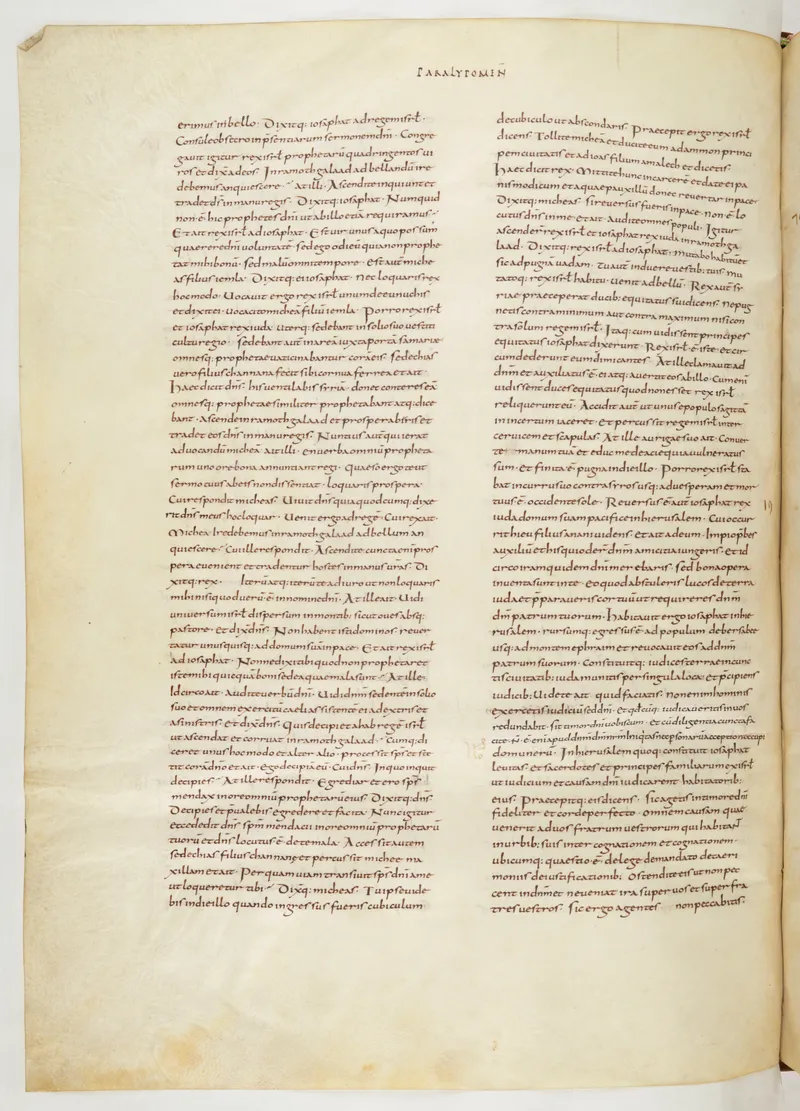 PARALYPOMEN̄
erimus in bello· Dixitq: iosaphat ad regem isrł·
Consule obsecro inp̄sentiarum sermonem dn̄i· Congre
gauit igitur rex isrł prophetarū quadringentos ui
ros et dix̄ ad eos· In ramoth galaad ad bellandū ire
debemus an quiescere· At illi· Ascendite inquiunt et
tradet dn̄s in manu regis· Dixitq: iosaphat· Numquid
non ē hic prophetes dn̄i ut ab illo etiā requiramus·
Et ait rex isrł ad iosaphat· Est uir unus a quo possum
quaerere dn̄i uoluntatē· sed ego odi eū quia non prophe
tat mihi bonū· sed malū omni tempore· Est aut̄ miche
as filius iemla· Dixitq: ei iosaphat· Nec loquaris rex
hoc modo· Uocauit ergo rex isrł unum de eunuchis
et dixit ei· Uoca cito micheā filiū iemla· Porro rex isrł
et iosaphat rex iuda· uterq: sedebant in solio suo uestiti
cultu regio· sedebant aut̄ in area iuxta portā samariae
omnesq: prophetae uaticinabantur corā eis· sedechias
uero filius channana fecit sibi cornua ferrea et ait·
Haec dicit dn̄s· his uentilabis syriā· donec conteres eā
omnesq: prophetae similiter prophetabant atq: dice
bant· Ascende in ramoth galaad et prosperaberis et
tradet eos dn̄s in manu regis· Nuntius aut̄ qui ierat
ad uocandū micheā· ait illi· en uerba omniū propheta
rum uno ore bona annuntiant regi· quaeso ergo te ut
sermo tuus ab eis non dissentiat· loquaris prospera·
Cui respondit micheas· Uiuit dn̄s quia quodcumq: dixe
rit dn̄s meus hoc loquar· Uenit ergo ad regē· Cui rex ait·
Michea ire debemus in ramoth galaad ad bellum an
quiescere· Cui ille respondit· Ascendite cuncta enī pros
pera euenient et tradentur hostes in manus uras̄· Di
xitq: rex· Iterū atq: iterū te adiuro ut non loquaris
mihi nisi quod uerū ē in nomine dn̄i· At ille ait· Uidi
uniuersum isrł dispersum in montib: sicut oues absq:
pastore· et dix̄ dn̄s· Non habent isti dominos reuer
tatur unusquisq: ad domum suā in pace· Et ait rex isrł
ad iosaphat· Nonne dixi tibi quod non prophetaret
iste mihi quicquā boni sed ea quae mala sunt· At ille·
Idcirco ait· Audite uerbū dn̄i· Uidi dnm̄ sedente in solio
suo et omnem exercitū caeli assistentē ei a dextris et
a sinistris· et dix̄ dn̄s· Quis decipiet ahab regē isrł
ut ascendat et corruat in ramoth galaad· Cumq: di
ceret unus hoc modo et alter alio· processit sp̄s et ste
tit corā dn̄o et ait· ego decipiā eū· Cui dn̄s· In quo inquit
decipies· At ille respondit· Egrediar et ero sp̄s
mendax in ore omniū prophetarū eius· Dixitq: dn̄s·
Decipies et p̄ualebis egredere et fac ita· Nunc igitur
ecce dedit dn̄s sp̄m mendacii in ore omniū prophetarū
tuorū et dn̄s locutus ē de te mala· Accessit autem
sedechias filius channana et percussit micheae ma
xillam et ait· Per quam uiam transiuit sp̄s dn̄i a me
ut loqueretur tibi· Dixq: micheas· Tu ipse uide
bis in die illo quando ingressus fueris cubiculum
de cubiculo ut abscondaris· Praecepit ergo rex isrł
dicens· Tollite micheā et ducite eum ad ammon princi
pem ciuitatis et ad ioas filium amalech et dicetis·
Haec dicit rex· Mittite hunc in carcerē et date ei pa
nis modicum et aquae pauxillū donec reuertar in pace·
Dixitq: micheas· si reuersus fueris in pace· non ē lo
cutus dn̄s in me· et ait· Audite omnes populi· Igitur
ascender rex isrł et iosaphat rex iuda in ramoth ga
laad· Dixitq: rex isrł ad iosaphat· mutabo habitū et
sic ad pugnā uadam· tu aut̄ induere uestib: tuis· mu
tatoq: rex isrł habitu· uenit ad bellū· Rex aut̄ sy
riae praeceperat ducib: equitatus sui dicens· ne pug
netis contra minimum aut contra maximum nisi con
tra solum regem isrł· Itaq: cum uidissent principes
equitatus iosaphat dixerunt· Rex isrł ē iste· et cir
cumdederunt eum dimicantes· At ille clamauit ad
dnm̄ et auxiliatus ē ei atq: auertit eos ab illo· Cum enī
uidissent duces equitatus quod non esset rex isrł
reliquerunt eū· Accidit aut̄ ut unus e populo sagittā
in incertum iaceret· et percussit regem isrł inter
ceruicem et scapulas· At ille aurigae suo ait· Conuer
te manum tuā et educ me de acie quia uulneratus
sum· et finita ē pugna in die illo· Porro rex isrł sta
bat in curru suo contra syros usq: ad uesperam et mor
tuus ē occidente sole· Reuersus ē aut̄ iosaphat rex
iuda domum suam pacifice in hierusalem· Cui occur
rit hieu filius anani uidens· et ait ad eum· Impio p̄bes
auxiliū et his qui oder̄ dnm̄ amicitia iungeris· et id
circo iram quidem dn̄i merebaris· sed bona opera
inuenta sunt in te· eo quod abstuleris lucos de terra
iuda et p̄paraueris cor tuū ut requireres dnm̄
dm̄ patrum tuorum· Habitauit ergo iosaphat in hie
rusalem· rursumq: egressus ē ad populum de bersabee
usq: ad montem ephraim et reuocauit eos ad dnm̄
patrum suorum· Constituitq: iudices terrae in cunc
tis ciuitatib: iuda munitis per singula loca· et p̄cipiens
iudicib: Uidete ait· quid faciatis· non enim hominis
exercetis iudiciū sed dn̄i· et qđcūq: iudicaueritis in uos
redundabit· sit timor dn̄i uobiscum· et cū diligentia cuncta fa
cite· N̄ ē enī apud dnm̄ dm̄ nrm̄ iniquitas nec personarū acceptio nec cupi
do munerū· In hierusalem quoq: constituit iosaphat
leuitas et sacerdotes et principes familiarum ex isrł
ut iudicium et causam dn̄i iudicarent habitatorib:
eius· Praecepitq: eis dicens· sic agetis in timore dn̄i
fideliter et corde perfecto· omnem causam quae
uenerit ad uos fratrum uestrorum qui habitant
in urbib: suis inter cognationem et cognationem·
ubicumq: quaestio ē· de lege de mandato de caeri
moniis de iustificationib: Ostendite eis ut non pec
cent in dnm̄ et ne ueniat ira super uos et super fra
tres uestros· sic ergo agentes non peccabitis·